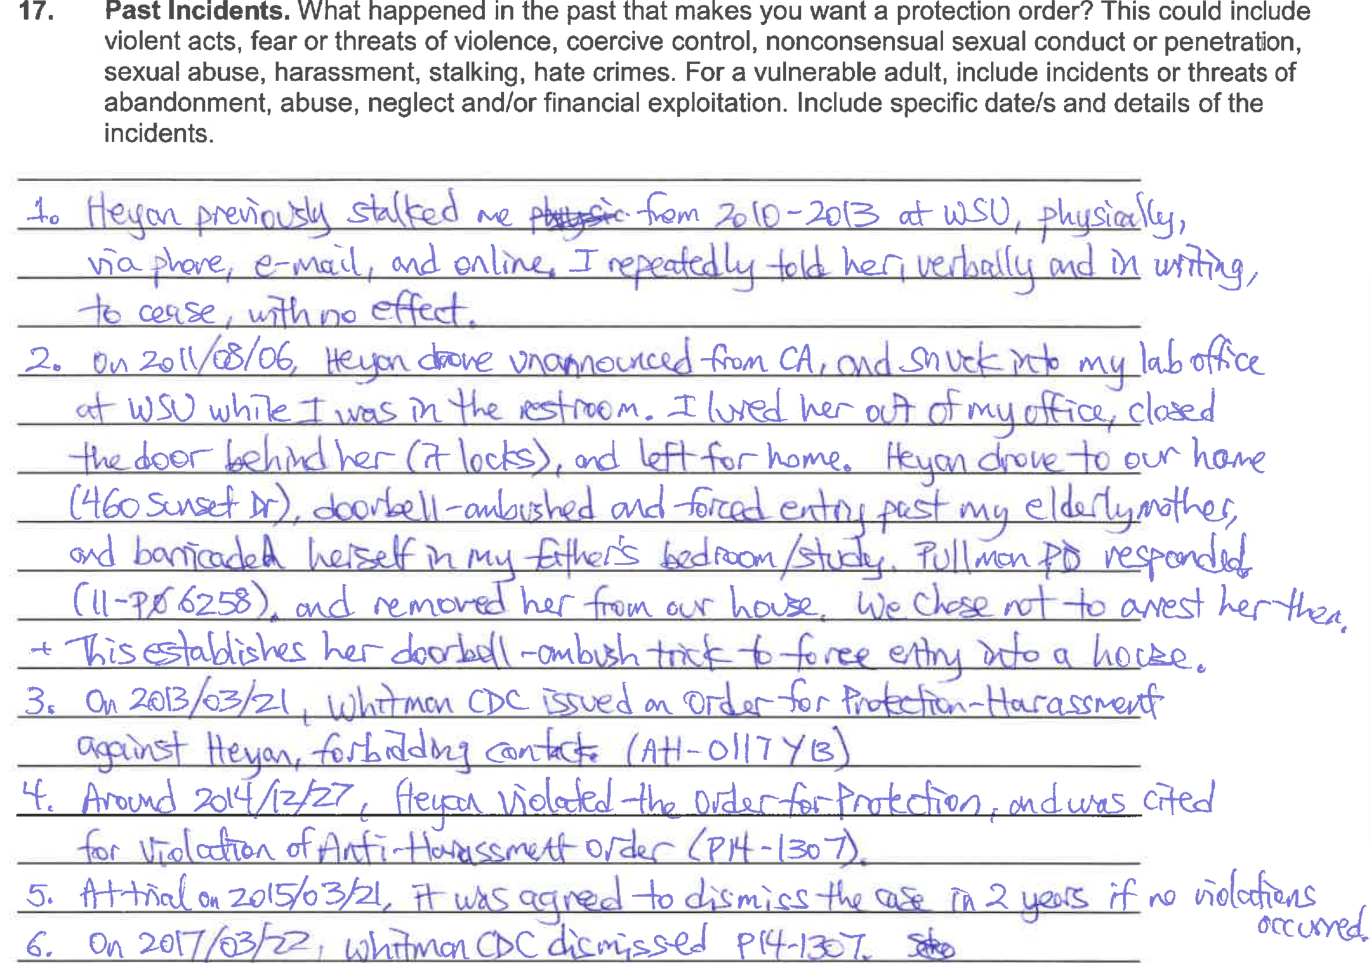 17. Past Incidents. What happened in the past that makes you want a protection order? This could include
violent acts, fear or threats of violence, coercive control, nonconsensual sexual conduct or penetration,
sexual abuse, harassment, stalking, hate crimes. For a vulnerable adult, include incidents or threats of
abandonment, abuse, neglect and/or financial exploitation. Include specific date/s and details of the
incidents.
1. Heyan previously stalked me from 2010-2013 at WSU, physically,
via phone, e-mail, and online. I repeatedly told her, verbally and in writing,
to cease, with no effect.
2. On 2011/08/06, Heyan drove unannounced from CA, and snuck into my lab office
at WSU while I was in the restroom. I lured her out of my office, closed
the door behind her (it locks), and left for home. Heyan drove to our home
(460 Sunset Dr), doorbell-ambushed and forced entry past my elderly mother,
and barricaded herself in my father's bedroom/study. Pullman PD responded
(11-P06258), and removed her from our house. We chose not to arrest her then.
+ This establishes her doorbell-ambush trick to force entry into a house.
3. On 2013/03/21, Whitman CDC issued an Order for Protection-Harassment
against Heyan, forbidding contact. (AH-0117 YB)
4. Around 2014/12/27, Heyan violated the Order for Protection, and was cited
for Violation of Anti-Harassment Order (P14-1307).
5. At trial on 2015/03/21, it was agreed to dismiss the case in 2 years if no violations
occurred.
6. On 2017/03/22, Whitman CDC dismissed P14-1307.